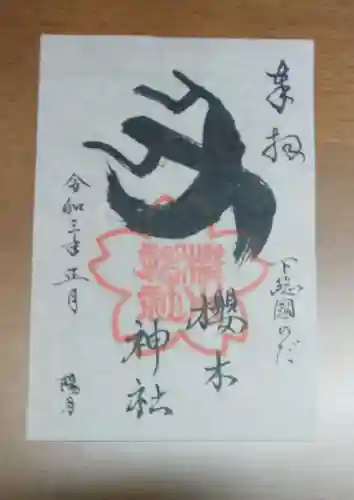 奉拝
下総國のだ
櫻木
神社
令和三年正月